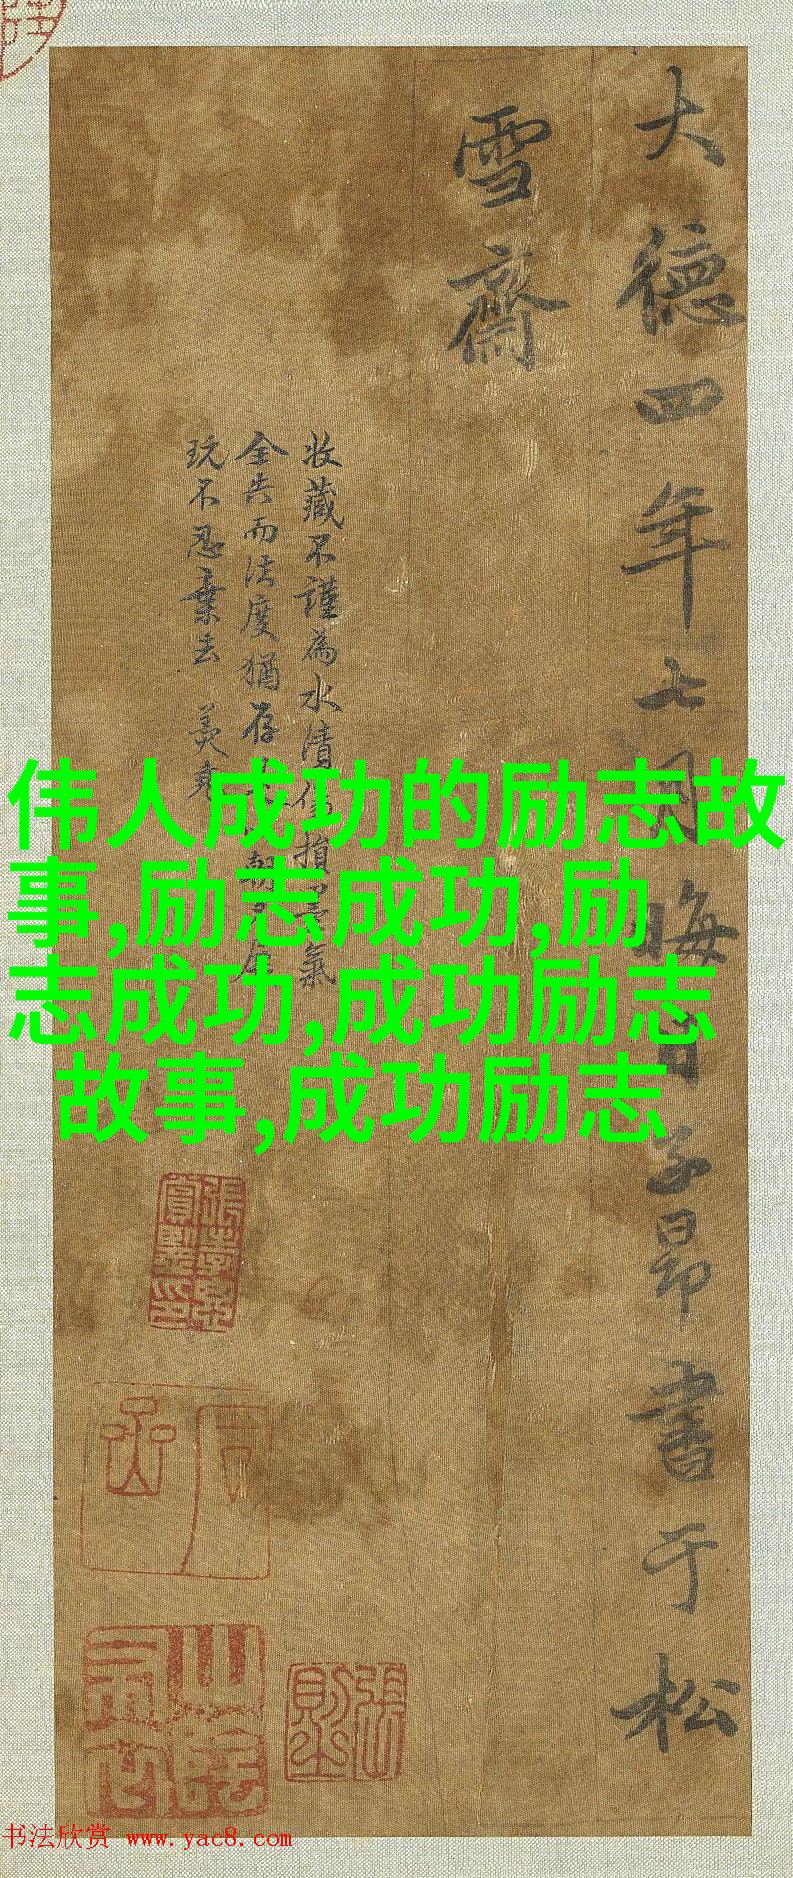 大德四年七月晦日子昂書于松
雪齋
收藏不謹為水漬傷損墨氣
全失而法度猶存
玩不忍棄去
伟人成功的励志故
事,励志成功,励
志成功,成功励志
故事,成功励志
书法欣赏 www.yac8.com